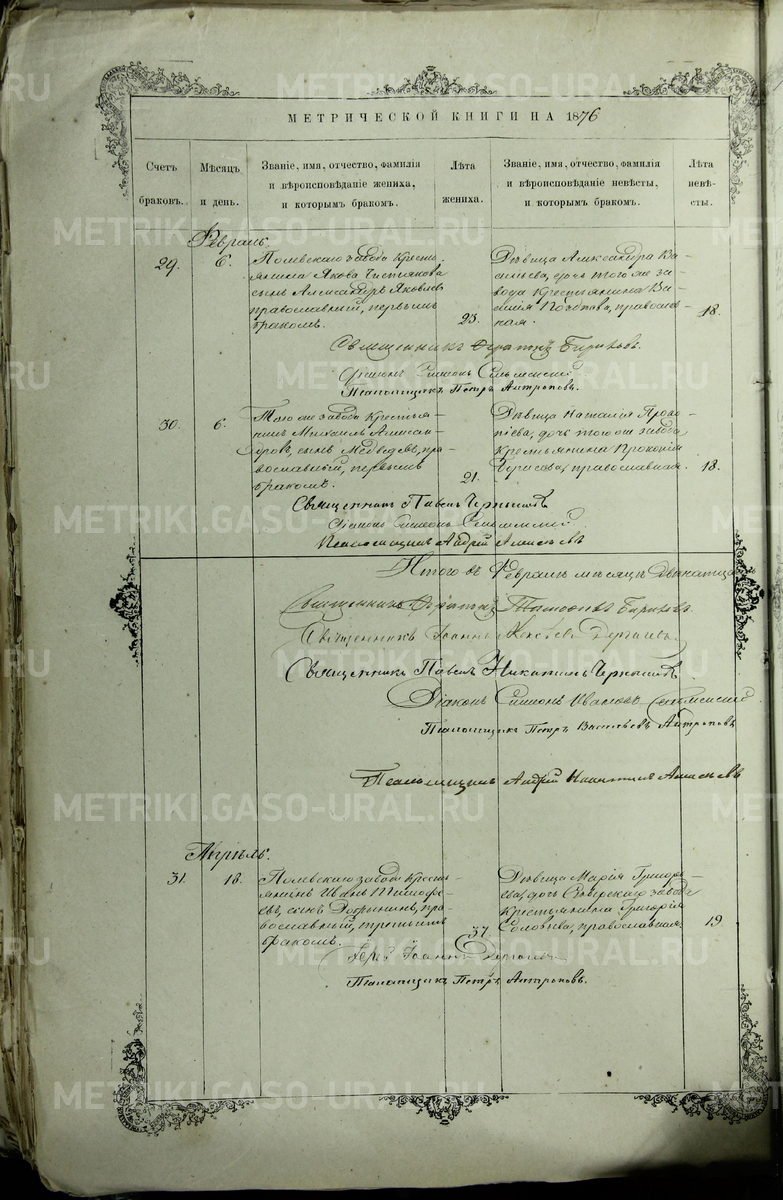 МЕТРИЧЕСКОЙ КНИГИ НА 1876
Счетъ браковъ.
Мѣсяцъ и день.
Званіе, имя, отчество, фамилія
и вѣроисповѣданіе жениха,
и которымъ бракомъ.
Лѣта жениха.
Званіе, имя, отчество, фамилія
и вѣроисповѣданіе невѣсты,
и которымъ бракомъ.
Лѣта невѣсты.
Февраль.
29.
6.
Полевскаго завода кресть-
янина Якова Чистякова
сынъ Александръ Яковлевъ
православный, первымъ
бракомъ.
23.
Дѣвица Александра Ва-
сильева, дочь того же за-
вода крестьянина Ва-
силія, православ-
ная.
18.
Священникъ
Діаконъ Симеонъ
Псаломщикъ Петръ Антроповъ.
30.
6.
Того же завода крестья-
нинъ Михаилъ Алексан-
дровъ, сынъ Медведевъ, пра-
вославный, первымъ
бракомъ.
21.
Дѣвица Наталія Проко-
піева, дочь того же завода
крестьянина Прокопія
православная.
18.
Священникъ Павелъ Чернышевъ
Діаконъ Симеонъ
Псаломщикъ Андрей Алексѣевъ
Итого въ Февралѣ мѣсяцѣ
Священникъ
Священникъ Іоаннъ
Священникъ Павелъ Никитинъ Чернышевъ
Діаконъ Симеонъ Ивановъ
Псаломщикъ Петръ Васильевъ Антроповъ
Псаломщикъ Андрей Алексѣевъ
Апрѣль.
31.
18.
Полевскаго завода кресть-
янинъ Иванъ Тимофе-
евъ, сынъ пра-
вославный, третьимъ
бракомъ.
37.
Дѣвица Марія Григорь-
ева, дочь Сѣверскаго завода
крестьянина Григорія
Соловьева, православная.
19
Іерей Іоаннъ
Псаломщикъ Петръ Антроповъ.
METRIKI.GASO-URAL.RU